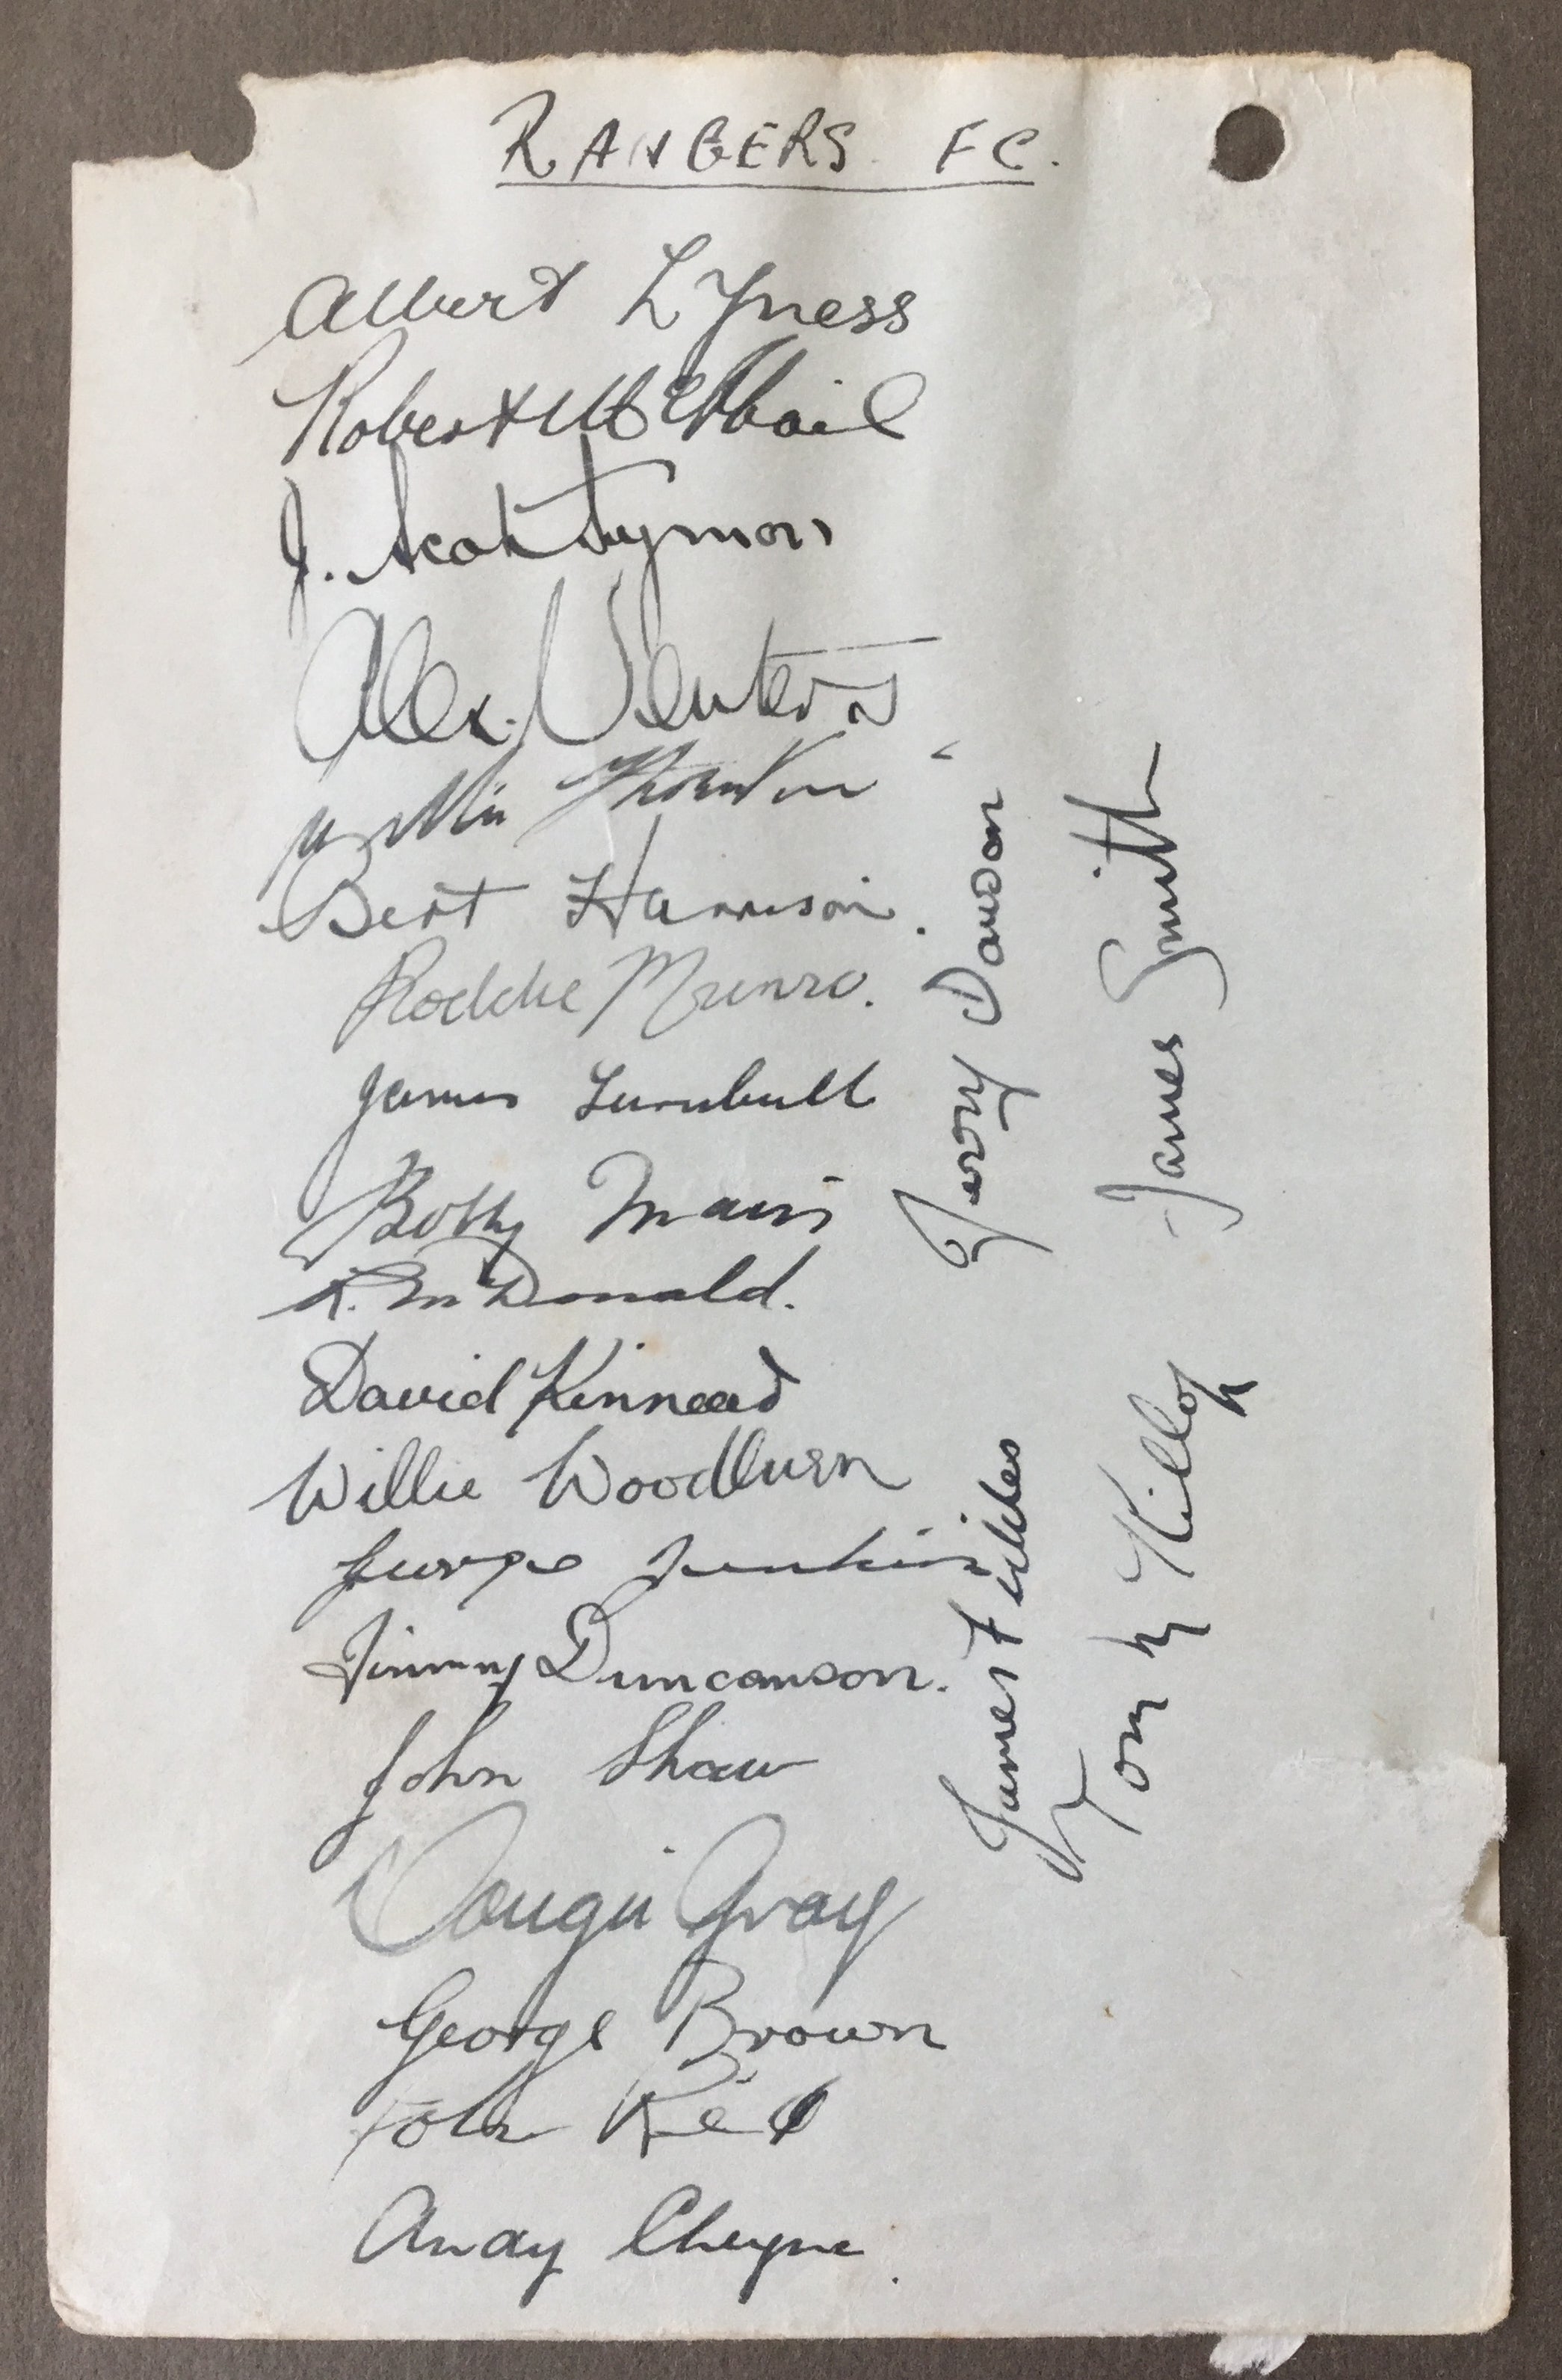 RANGERS FC.
Albert Lyness
Robert McPhail
J. Scot Symon
Alex. Venters
Willie Thornton
Bert Harrison.
Roddie Munro.
James Turnbull
Bobby Main
K. McDonald.
David Kinnear
Willie Woodburn
George Jenkins
Jimmy Duncanson.
John Shaw
Dougie Gray
George Brown
John Reid
Andy Cheyne.
Jerry Dawson
James Smith
James Fiddes
Tom McKillop